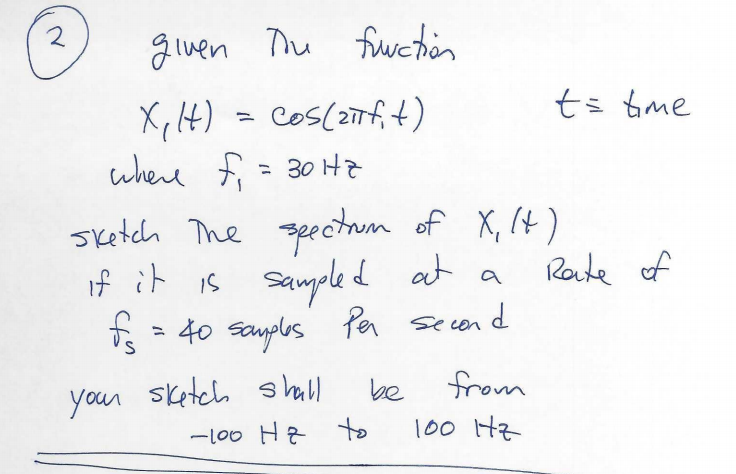 2 given The function
X₁(t) = cos(2πf₁t) t ≡ time
where f₁ = 30 Hz
sketch The spectrum of X₁(t)
if it is sampled at a Rate of
fₛ = 40 samples Per second
your sketch shall be from
-100 Hz to 100 Hz